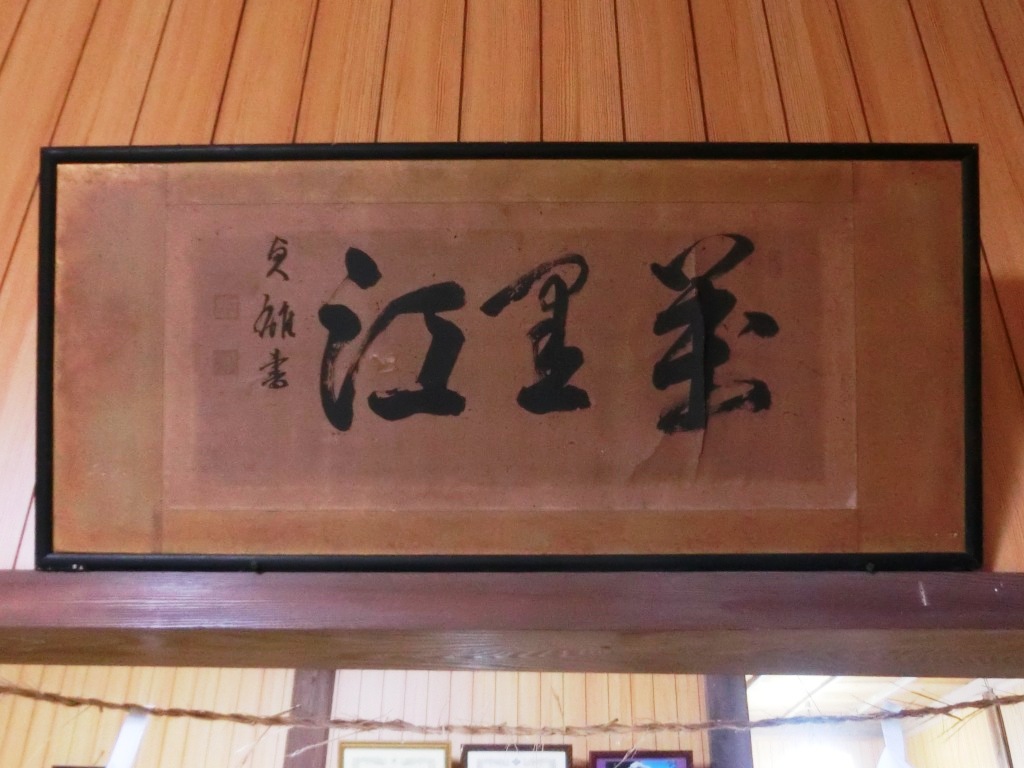 萬里江
貞雄書